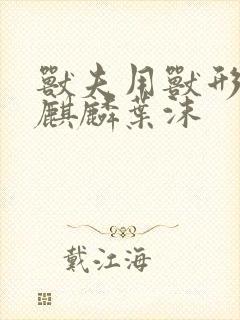 獸夫用獸形
麒麟葉沫
戴江海